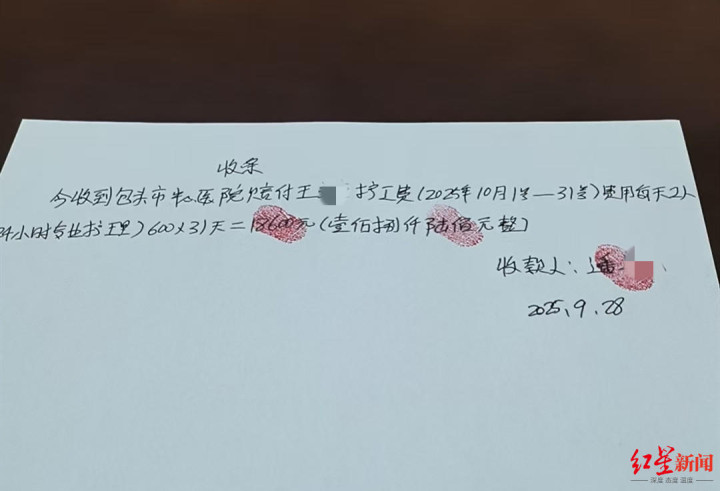 收条
今收到包头市中心医院赔付王 护工费(2025年10月1号—31号)费用每天2人
24小时专业护理)600×31天=18600元(壹佰捌仟陆佰元整)
收款人:
2025.9.28
红星新闻
深度 态度 温度